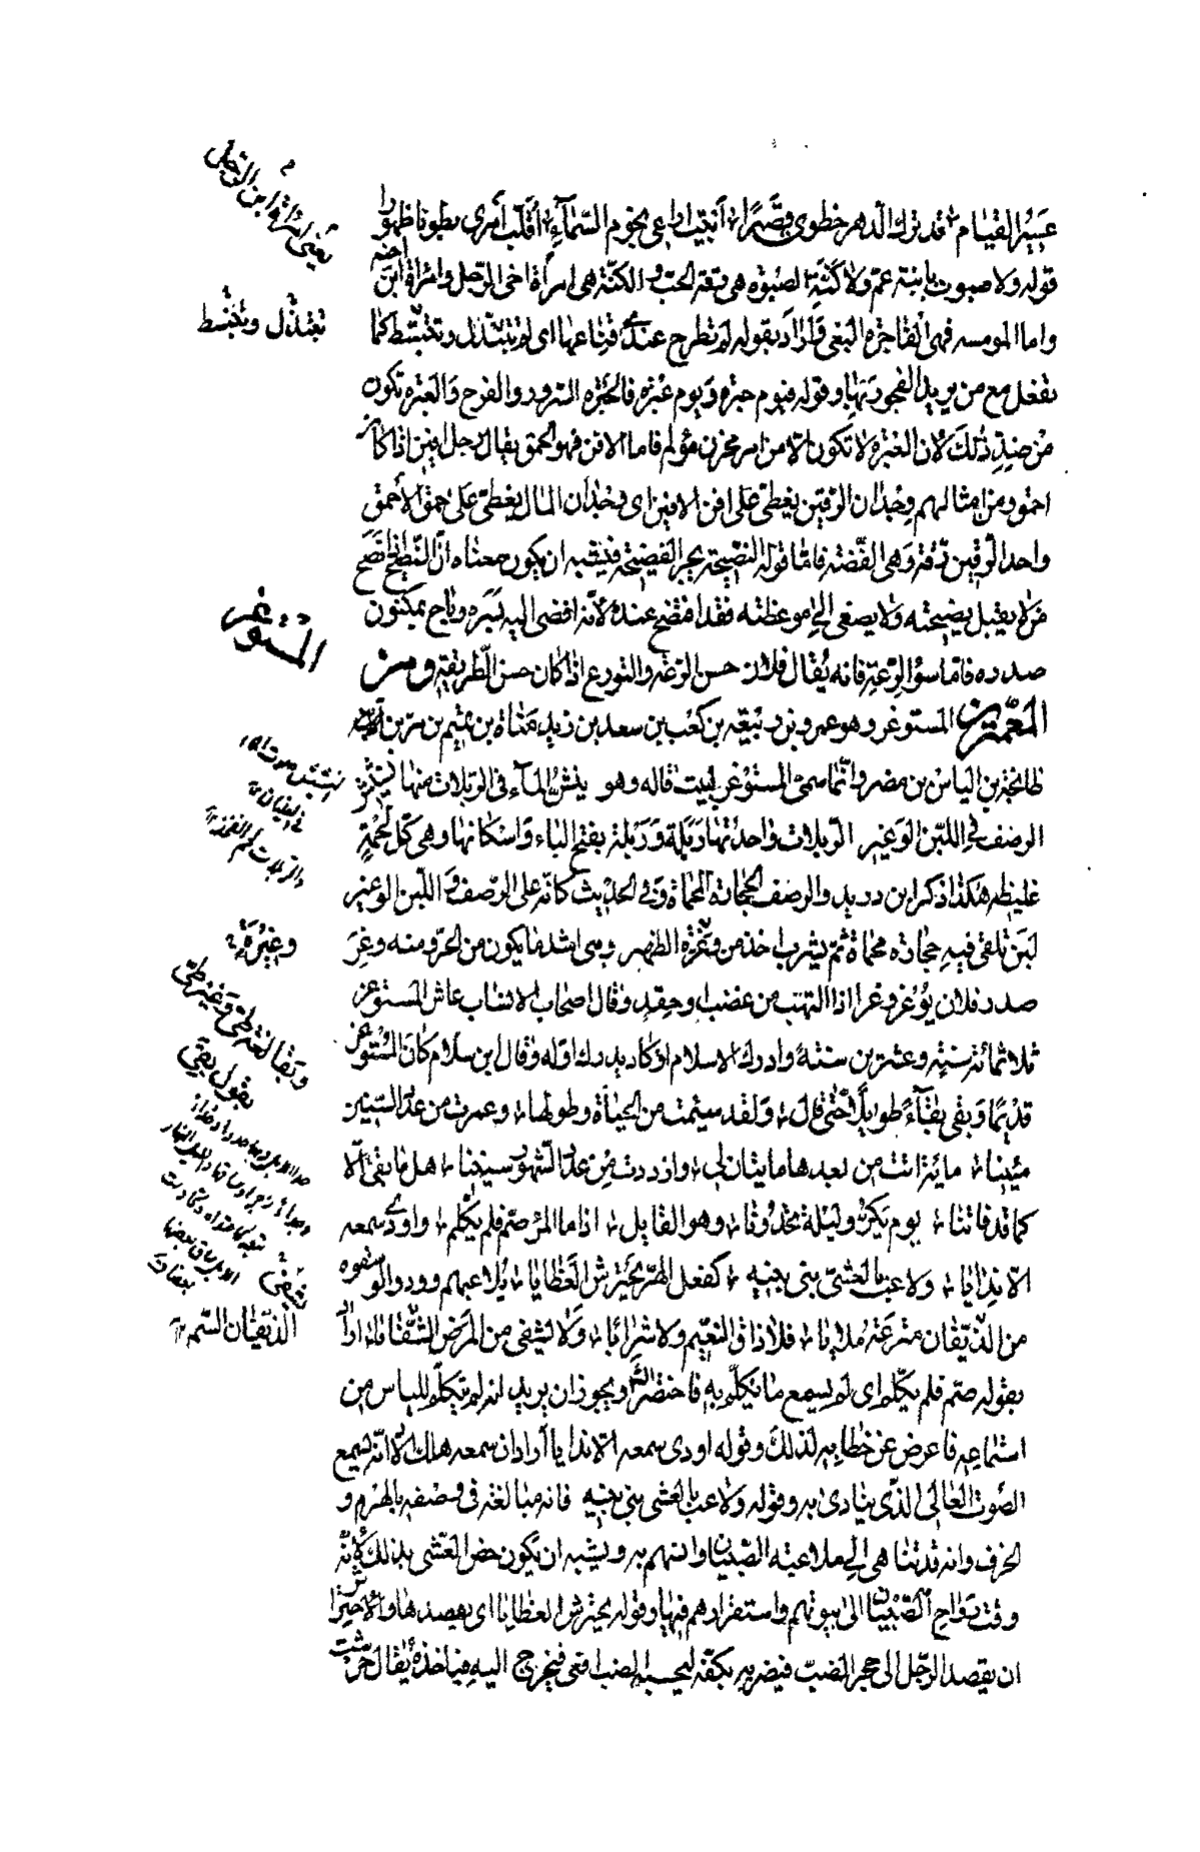 عسير القيام قد ترك الدهر خطوى قصيرا ابيت اراعى نجوم السماء اقلب امرى بطونا ظهورا
قوله ولا صبوت بابنة عم ولا كنة الصبوة هى رقة الحب والكنة هى امرأة اخى الرجل وامراة ابن اخيه
واما المومسه فهى الفاجرة البغى واراد بقوله لم تطرح عندى قناعها اى لم تتبذل وتنبسط كما
تفعل مع من يريد الفجور بها وقوله فيوم حبره ويوم عبره فالحبرة السرور والفرح والعبره تكون
من ضد ذلك لان العبره لا تكون الا من امر محزن مؤلم فاما الافن فهو الحمق يقال رجل افين اذا كان
احمق ومن امثالهم وجدان الرقين يغطى على افن الافين اى وجدان المال يغطى على حمق الاحمق
واحد الرقين رقة وهى الفضة فاما قوله النصيحة يجر الفضيحة فيشبه ان يكون معناه ان النصيح اذا نصح
من لا يقبل نصيحته ولا يصغى الى موعظته فقد افتضح عنده لانه افضى اليه بسره وباح بمكنون
صدره فاما سوء الرعه فانه يقال فلان حسن الرعه والتورع اذا كان حسن الطريقه ومن
المعمرين المستوغر وهو عمرو بن ربيعه بن كعب بن سعد بن زيد مناة بن تميم بن مر بن اد بن
طابخة بن الياس بن مضر وانما سمى المستوغر لبيت قاله وهو ينش الماء فى الربلات منها نشيش
الرضف فى اللبن الوغير الربلات واحدتها ربلة وربلة بفتح الباء واسكانها وهى كل لحمة
غليظه هكذا ذكر ابن دريد والرضف الحجارة المحماة وفى الحديث كانه على الرضف واللبن الوغير
لبن تلقى فيه حجارة محماة ثم يشرب اخذ من وغرة الظهر وهى اشد ما يكون من الحر ومنه وغر
صدر فلان يوغر وغرا اذا التهب من غضب او حقد وقال اصحاب الانساب عاش المستوغر
ثلاثمائة سنه وعشرين سنة وادرك الاسلام او كاد يدرك اوله وقال ابن سلام كان المستوغر
قديما وبقى بقاء طويلا حتى قال ولقد سئمت من الحياة وطولها وعمرت من عدد السنين
مئينا مائة اتت من بعدها مايتان لى وازددت من عدد الشهور سنينا هل ما بقى الا
كما قد فاتنا يوم يكر وليلة تحدونا وهو القايل اذا ما المرء صم فلم يكلم واودى سمعه
الا ندايا ولاعب بالعشى بنى بنيه كفعل الهر يحترش العظايا يلاعبهم وودوا لو سقوه
من الذيقان مترعة ملايا فلا ذاق النعيم ولا شرابا ولا يشفى من المرض الشفايا اراد
بقوله صم فلم يكلم اى لم يسمع ما يكلم به فاختصر ويجوز ان يريد انه لم يتكلم للياس من
استماعه فاعرض عن خطابه لذلك وقوله اودى سمعه الا ندايا اراد ان سمعه هلك الا انه يسمع
الصوت العالى الذى ينادى به وقوله ولاعب بالعشى بنى بنيه فانه مبالغة فى وصفه بالهرم و
الخرف وانه قد تناهى الى ملاعبة الصبيان وانسهم به ويشبه ان يكون خص العشى بذلك لانه
وقت رواح الصبيان الى بيوتهم واستقرارهم فيها وقوله يحترش العظايا اى يصيدها والاحتراش
ان يقصد الرجل الى حجر الضب فيضربه بكفه ليحسبه الضب افعى فيخرج اليه فياخذه يقال حرشت
يعنى امراة ابن الرجل
تتبذل وتنبسط
المستوغر
وغيرة
يقول بقى
يشفى
الذيقان السم